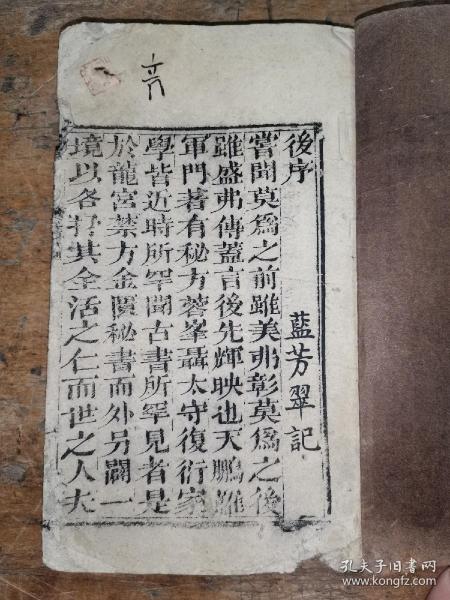 六
後序
藍芳翠記
嘗聞莫爲之前雖美弗彰莫爲之後
雖盛弗傳蓋言後先輝映也天鵬維
軍門著有秘方蓉峯聶太守復衍家
學皆近時所罕聞古書所罕見者是
於龍宮禁方金匱秘書而外另闢一
境以各行其全活之仁而世之人夫
孔夫子旧书网
www.kongfz.com